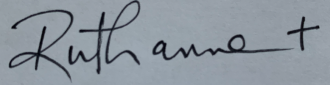 Ruthanne +